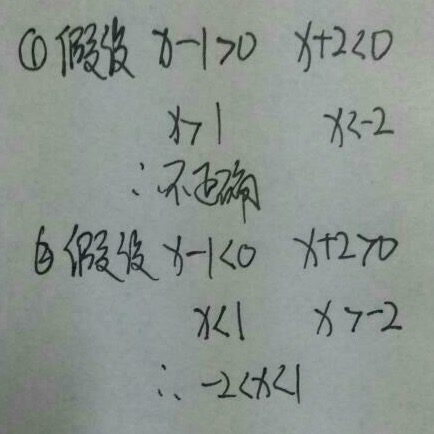 ① 假设 x-1>0 x+2<0
x>1 x<-2
∴不正确
② 假设 x-1<0 x+2>0
x<1 x>-2
∴ -2<x<1